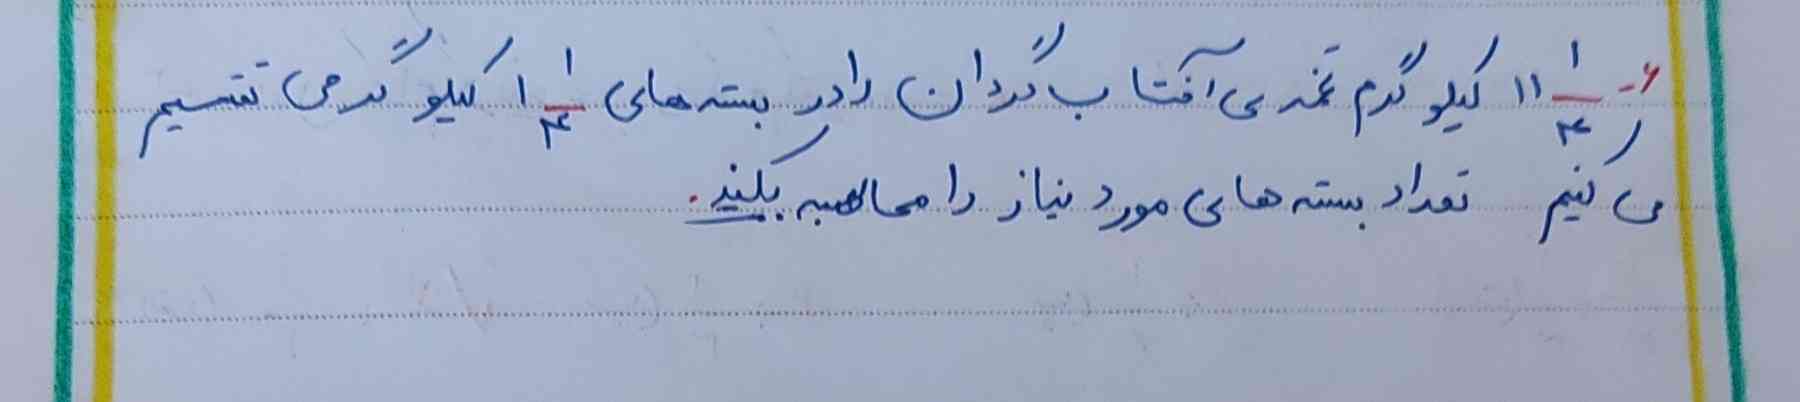 ۶- ۱۱ ۱/۴ کیلو گرم تخمه ی آفتاب گردان را در بسته های ۱ ۱/۴ کیلو گرمی تقسیم
می کنیم تعداد بسته های مورد نیاز را محاسبه بکنید.